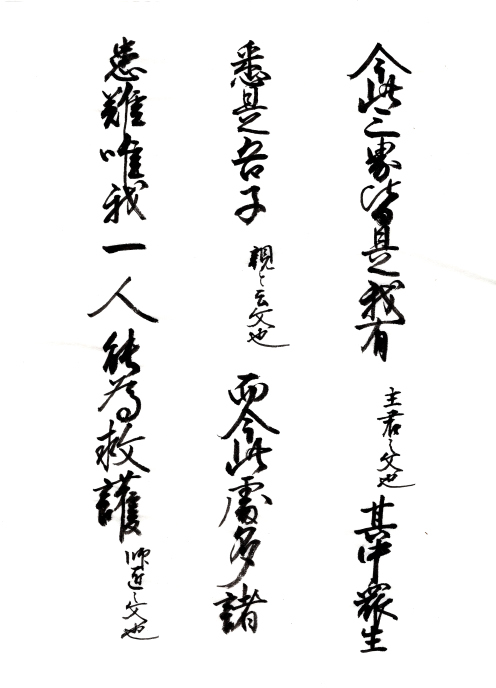 今此三界皆是我有 主君之文也 其中衆生
悉是吾子 親と云文也 而今此處多諸
患難唯我一人能為救護 師匠之文也